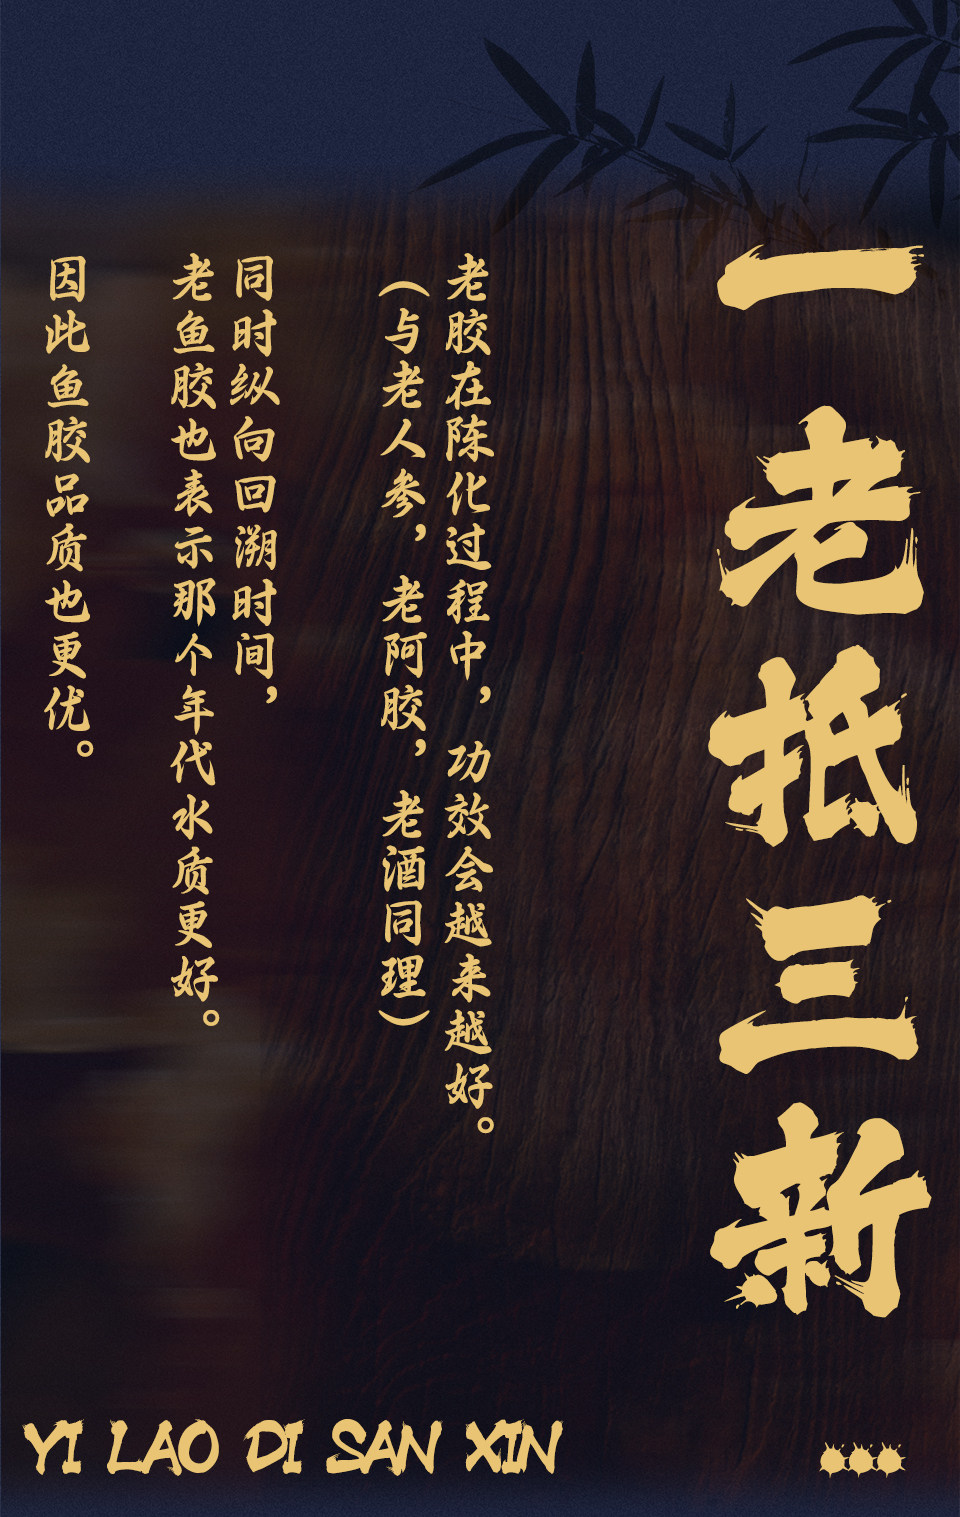 一老抵三新
老胶在陈化过程中，功效会越来越好。
（与老人参，老阿胶，老酒同理）
同时纵向回溯时间，
老鱼胶也表示那个年代水质更好。
因此鱼胶品质也更优。
YI LAO DI SAN XIN